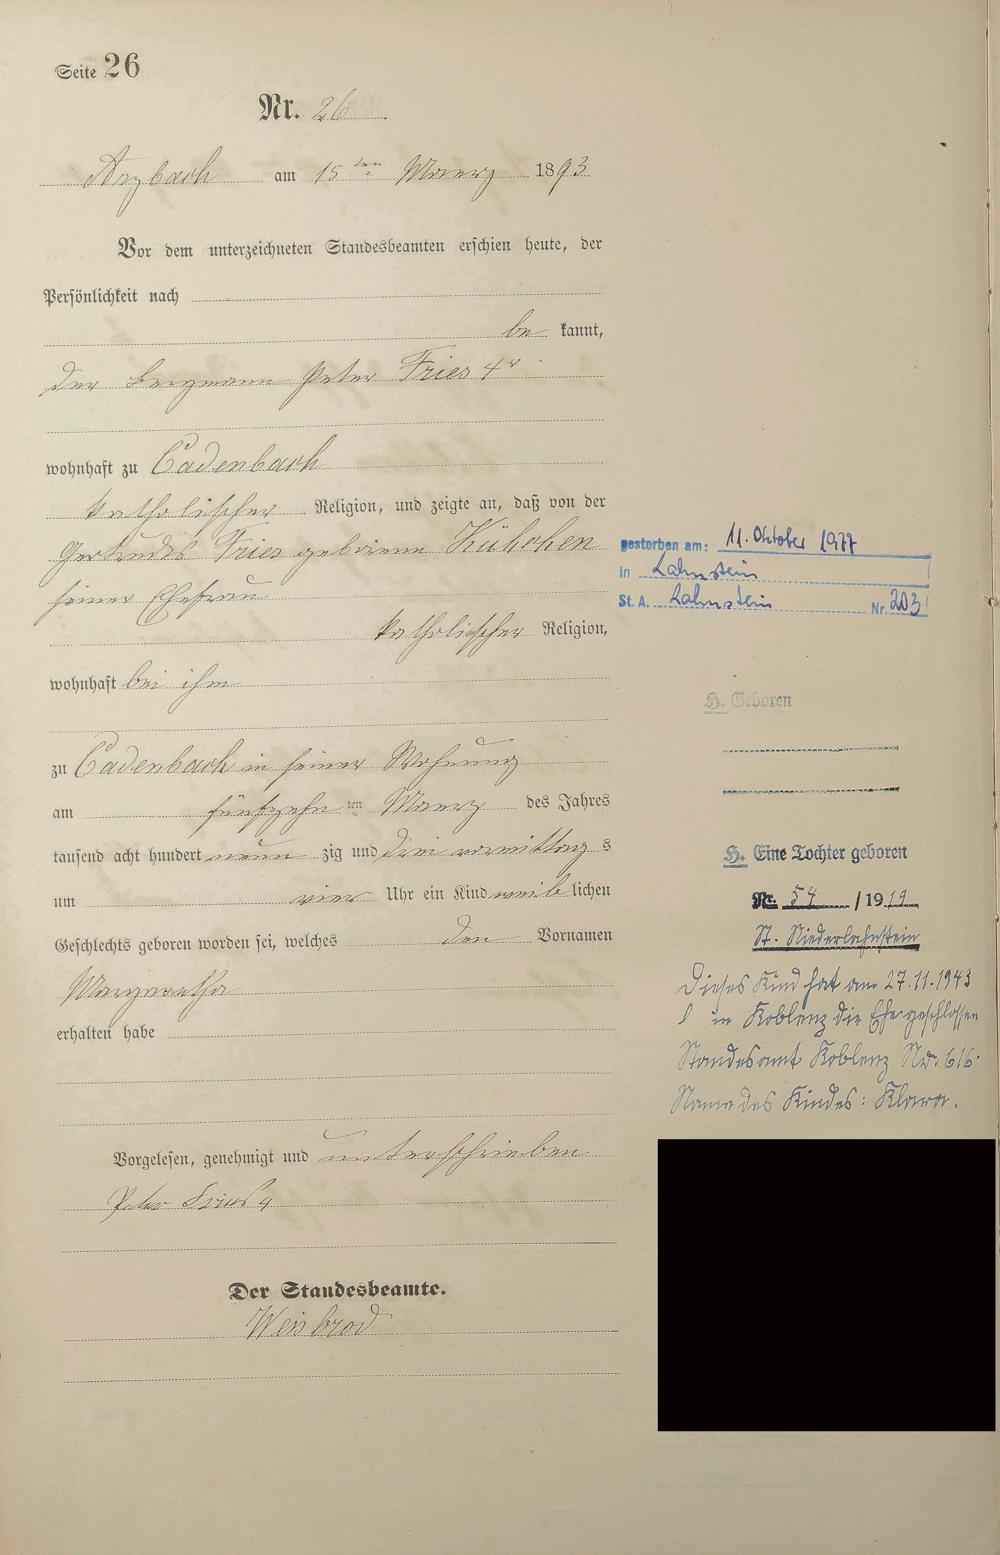 Seite 26
Nr. 26
Arzbach am 15ten Maerz 1893
Vor dem unterzeichneten Standesbeamten erschien heute, der
Persönlichkeit nach
be kannt,
der Bergmann Peter Fries 4r
wohnhaft zu Cadenbach
katholischer Religion, und zeigte an, daß von der
Gertrudis Fries geborene Kühchen
seiner Ehefrau
katholischer Religion,
wohnhaft bei ihm
zu Cadenbach in seiner Wohnung
am fünfzehn ten Maerz des Jahres
tausend acht hundert neun zig und drei vormittag s
um vier Uhr ein Kind weib lichen
Geschlechts geboren worden sei, welches den Vornamen
Margaretha
erhalten habe
Vorgelesen, genehmigt und unterschrieben
Peter Fries 4
Der Standesbeamte.
Weisbrod
gestorben am: 11. Oktober 1977
in Lahnstein
St. A. Lahnstein Nr. 203
H. Geboren
H. Eine Tochter geboren
Nr. 54 / 1919
St. Niederlahnstein
Dieses Kind hat am 27.11.1943
in Koblenz die Ehe geschlossen
Standesamt Koblenz Nr. 616.
Name des Kindes: Klara.